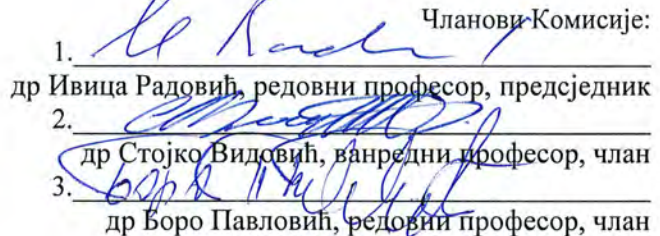 Чланови Комисије:
1.
др Ивица Радовић, редовни професор, предсједник
2.
др Стојко Видовић, ванредни професор, члан
3.
др Боро Павловић, редовни професор, члан